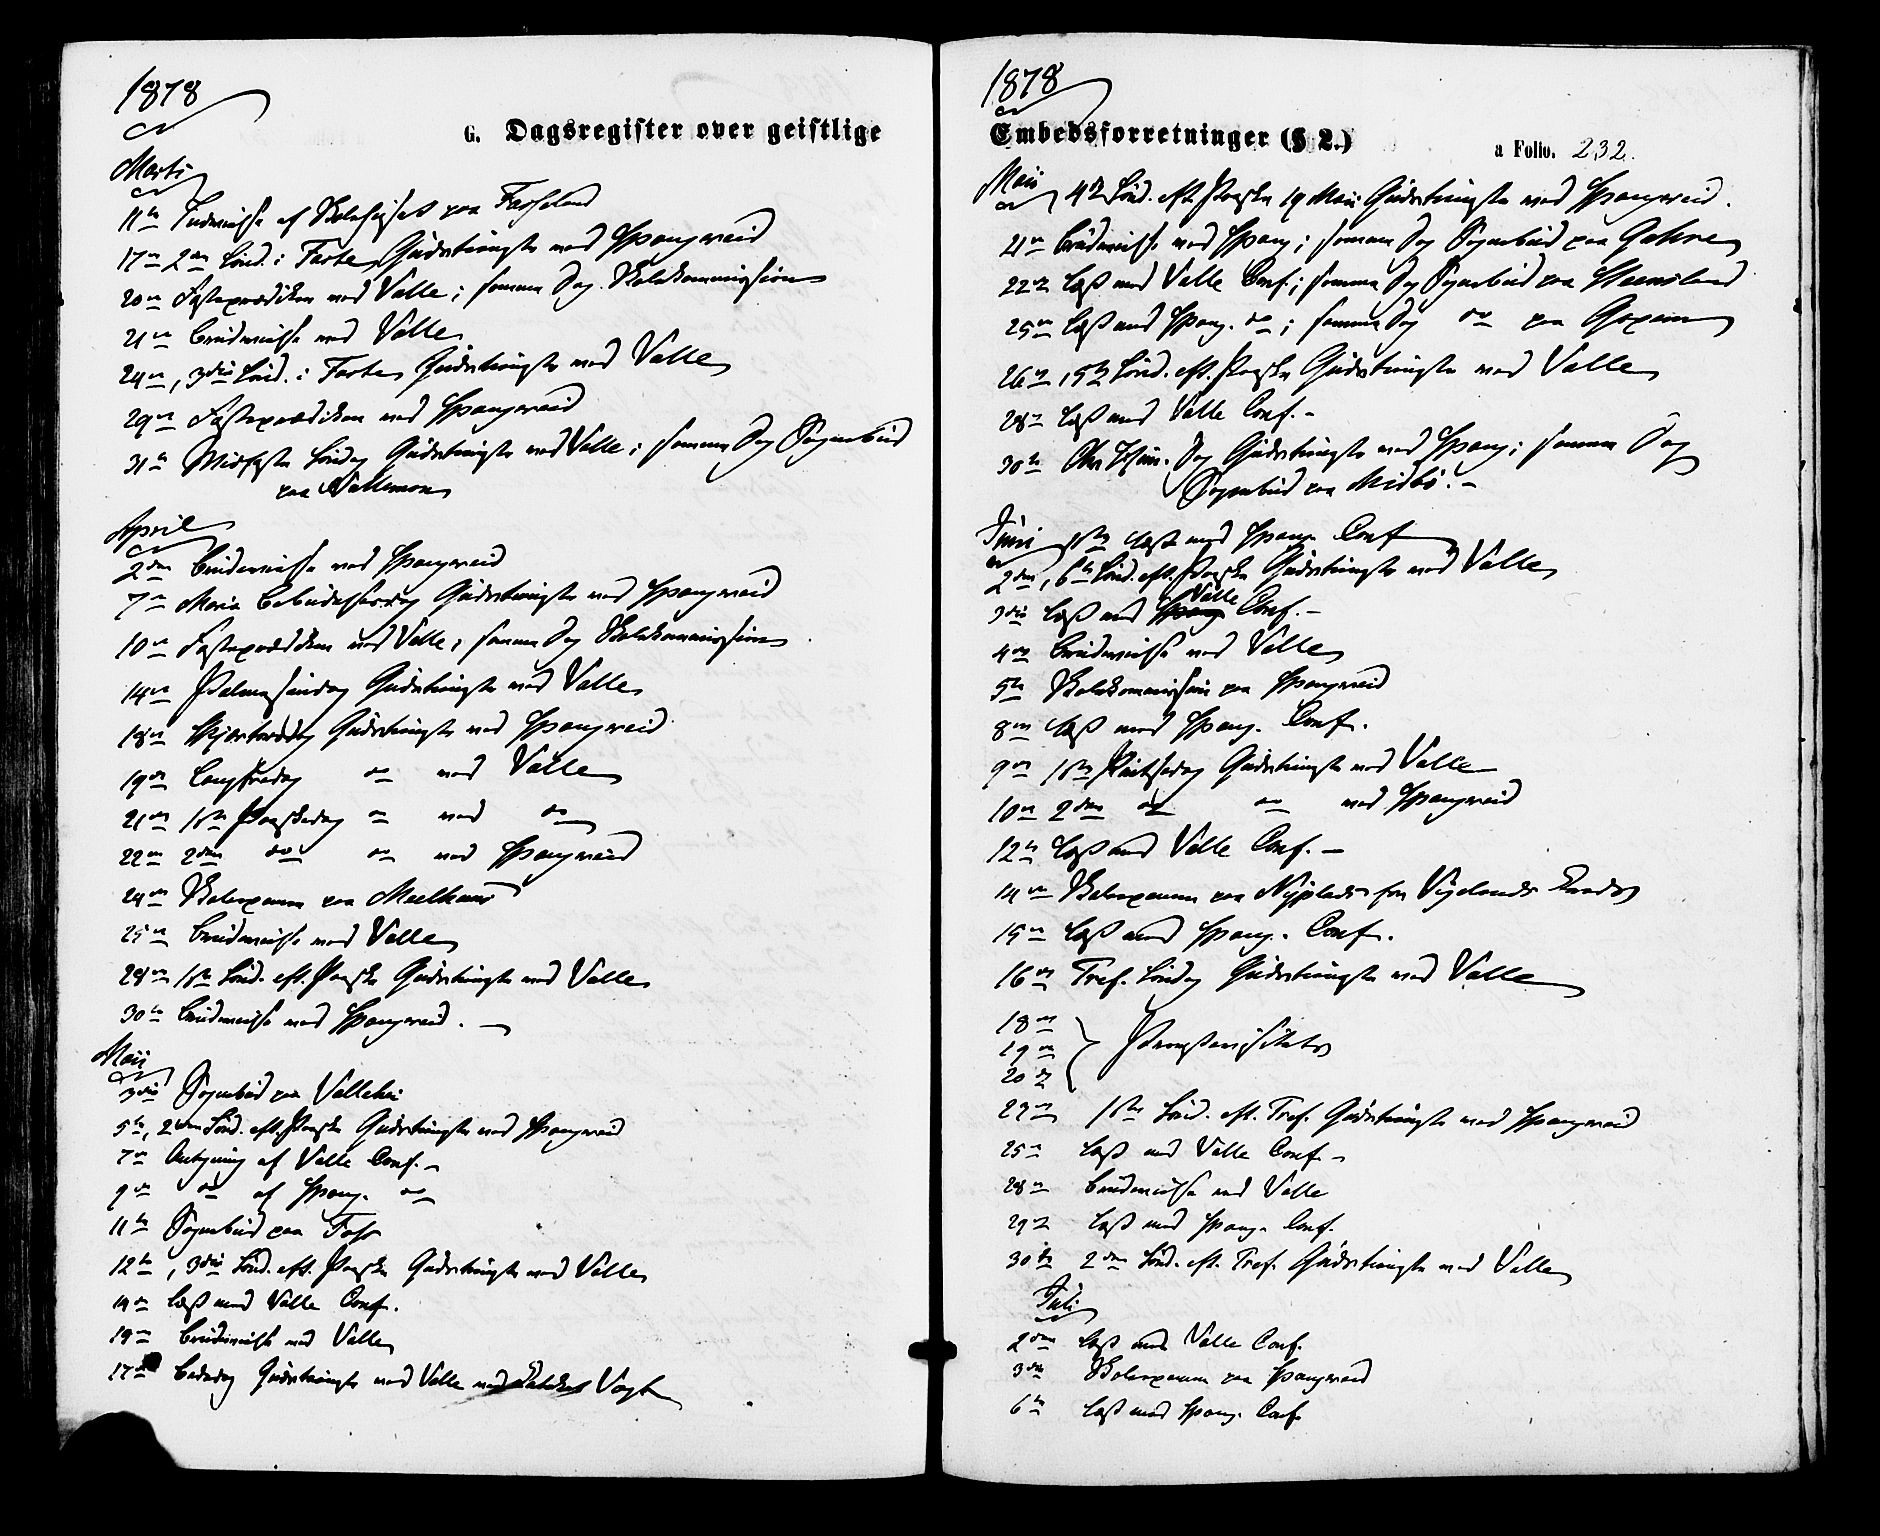 1878
G. Dagsregister over geistlige
Marts
11te Indvielse af Skolehuset paa Fasseland
17de 2den Sönd. i Faste, Gudstieneste ved Spangereid
20de Fasteprædiken ved Valle; samme Dag Skolekommission
21de Brudevielse ved Valle
24de, 3die Sönd. i Faste, Gudstieneste ved Valle
29de Fasteprædiken ved Spangereid
31te Midfaste Söndag Gudstieneste ved Valle; samme Dag Sognebud
paa Vallemoen
April
2den Brudevielse ved Spangereid
7de Maria Bebudelsesdag Gudstieneste ved Spangereid
10de Fasteprædiken ved Valle; samme Dag Skolekommission
14de Palmesöndag Gudstieneste ved Valle
18de Skjærtorsdag Gudstieneste ved Spangereid
19de Langfredag do ved Valle
21de 1ste Paaskedag do ved do
22de 2den do do ved Spangereid
24de Skolexamen paa Maelhuus
25de Brudevielse ved Valle
28de 1ste Sönd. eft. Paaske Gudstieneste ved Valle
30te Brudevielse ved Spangereid. –
Maii
3die Sognebud paa Vallehei
5te, 2den Sönd. eft. Paaske Gudstieneste ved Spangereid
7de Antegning af Valle Conf. –
9de do af Spang. do
11te Sognebud paa Foss
12te, 3die Sönd. eft. Paaske Gudstieneste ved Valle
14de læst med Valle Conf.
15de Brudevielse ved Valle
17de Bededag Gudstieneste ved Valle ved Vogt
1878
Embedsforretninger (§ 2.)
a Folio. 232.
Maii 4de Sönd. eft. Paaske 19 Maii Gudstieneste ved Spangereid.
21de Brudevielse ved Spang; samme Dag Sognebud paa Gahre
22de læst med Valle Conf.; samme Dag Sognebud paa Stensland
25de læst med Spang. do; samme Dag do paa
26de, 5te Sönd. eft. Paaske Gudstieneste ved Valle
28de læst med Valle Conf. –
30te Chr Hfim. Dag Gudstieneste ved Spang; samme Dag
Sognebud paa Midbö. –
Juni 1ste læst med Spang. Conf
2den, 6te Sönd. eft. Paaske Gudstieneste ved Valle
3die læst med Spang Valle Conf. –
4de Brudevielse ved Valle
5te Skolekommission paa Spangereid
8de læst med Spang. Conf.
9de 1ste Pintsedag Gudstieneste ved Valle
10de 2den do do ved Spangereid
12te læst med Valle Conf. –
14de Skolexamen paa Nyplads for Vigelands Kreds
15de læst med Spang. Conf.
16de Tref. Söndag Gudstieneste ved Valle
18de
19de } Provstevisitats
20de
23de 1ste Sönd. eft. Tref. Gudstieneste ved Spangereid
25de læst med Valle Conf. –
28de Brudevielse ved Valle
29de læst med Spang. Conf.
30te 2den Sönd. eft. Tref. Gudstieneste ved Valle
Juli
2den læst med Valle Conf.
3die Skolexamen paa Spangereid
6te læst med Spang. Conf.